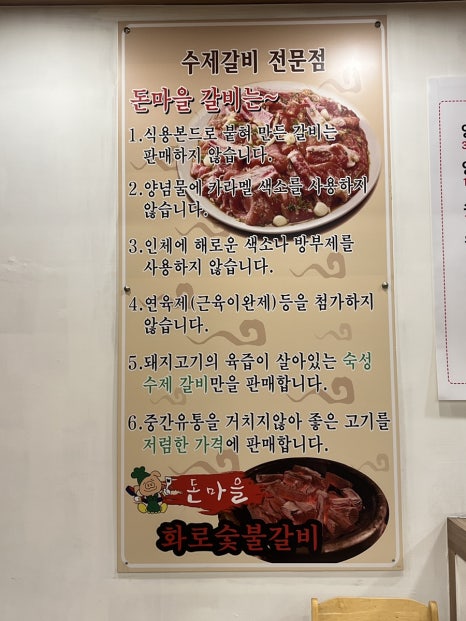 수제갈비 전문점
돈마을 갈비는~
1.식용본드로 붙혀 만든 갈비는
판매하지 않습니다.
2.양념물에 카라멜 색소를 사용하지
않습니다.
3.인체에 해로운 색소나 방부제를
사용하지 않습니다.
4.연육제(근육이완제)등을 첨가하지
않습니다.
5.돼지고기의 육즙이 살아있는 숙성
수제 갈비만을 판매합니다.
6.중간유통을 거치지않아 좋은 고기를
저렴한 가격에 판매합니다.
돈마을
화로숯불갈비